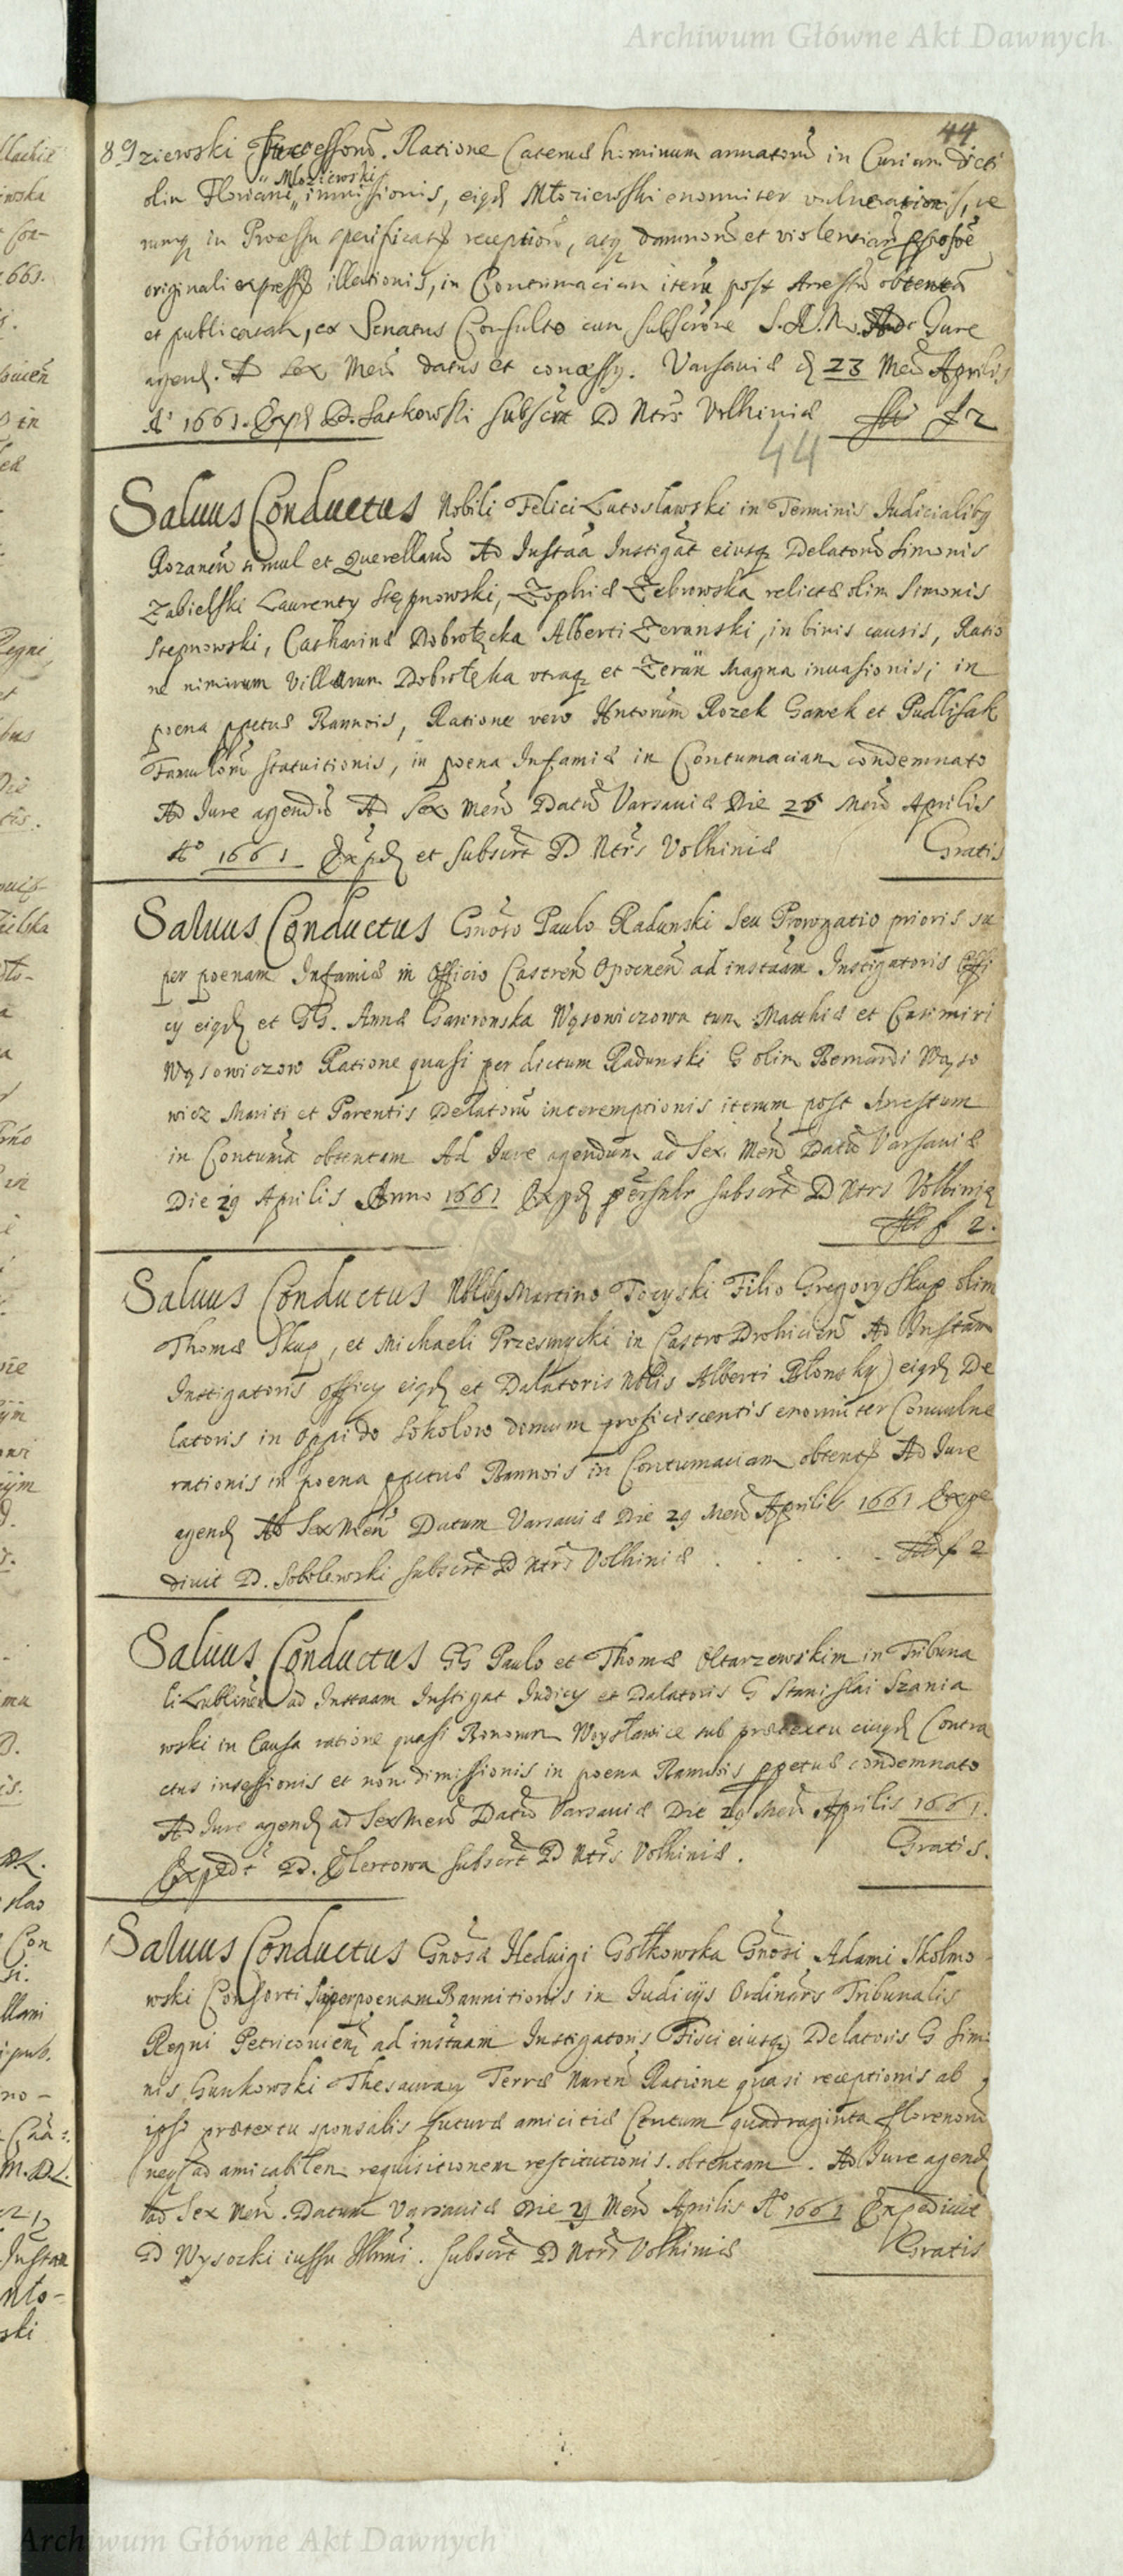 Archiwum Główne Akt Dawnych
44
89 ziewski Successorū. Ratione Catervæ hominum armatorū in Curiam dicti
olim Floriani Młoziewski immissionis, eiqɟ Młoziewski enormiter vulnerationis,
in Processu specificatꝫ receptionū, acqɟ damnorū et violentiarū
originali expressꝫ illationis, in Contumaciam iterū post Arestū obtentā
et publicatam, ex Senatus Consulto cum subscrōne S. R. M. Ad Jure
agend. Ad Sex Men datus et concessꝯ. Varsaviæ d 23 Men Aprilis
Aº 1661. Expd D. Satkowski subscrt D Ntrs Volhiniæ f 2
44
Salvus Conductus Nobili Felici Lutosławski in Terminis Judicialibꝯ
Rozanen simul et Querellarū Ad Instaā Instigat eiusqɟ Delatorū Simonis
Zabielski Laurenty Stępnowski, Zophiæ Zebrowska relictæ olim Simonis
Stepnowski, Catharinæ Dobrołęcka Alberti Zeranski, in binis causis, Ratio
ne nimirum Villarum Dobrołęka utraqɟ et Zerań Magna invasionis, in
poena ppetuæ Bannōis, Ratione vero Antonium Rozek Gawek et Pudlisak
Famulorū statuitionis, in poena Infamiæ in Contumaciam condemnato
Ad Jure agendū Ad Sex Men Datū Varsaviæ Die 25 Men Aprilis
Aº 1661 Expd et subscrt D Ntrs Volhiniæ Gratis
Salvus Conductus Gnōso Paulo Radunski seu Prorogatio prioris su
per poenam Infamiæ in Officio Castren Opocnen ad instaām Instigatoris Offi
cy eiqd et GG. Annæ Gawronska Wąsowiczowa tum Matthiæ et Casimiri
Wąsowiczow Ratione quasi per dictum Radunski G olim Bernardi Wąso
wicz Mariti et Parentis Delatorū interemptionis iterum post Arestum
in Contumā obtentam Ad Jure agendum ad Sex Men Datū Varsaviæ
Die 29 Aprilis Anno 1661 Expd subscrt D Ntrs Volhiniæ
f 2.
Salvus Conductus Nblibꝯ Martino Toczyski Filio Gregory Skup olim
Thomæ Skup, et Michaeli Przesmycki in Castro Drohicien Ad Instām
Instigatoris Officy eiqd et Dalatoris Nblis Alberti Błonsky eiqd De
latoris in Oppido Sokolow domum proficiscentis enormiter Convulne
rationis in poena ppetuæ Bannōis in Contumaciam obtentꝫ Ad Jure
agend Ad Sex Men Datum Varsaviæ Die 29 Men Aprilis 1661 Expe
divit D. Sobolewski subscrt D Ntrs Volhiniæ . . . . . f 2
Salvus Conductus GG Paulo et Thomæ Ołtarzewskim in Tribuna
li Lublinen ad Instaam Instigat Judicy et Dalatoris G Stanislai Szania
wski in Causa ratione quasi Bonorum Woysławice sub prætextu eiusqd Contra
ctus insessionis et non dimissionis in poena Bannōis ppetuæ condemnato
Ad Jure agend ad Sex Men Datū Varsaviæ Die 29 Men Aprilis 1661.
Expedt D. Elertowa subscrt D Ntrs Volhiniæ. Gratis.
Salvus Conductus Gnōsæ Hedvigi Gołkowska Gnōsi Adami Skolmo
wski Consorti Super poenam Bannitionis in Judicijs Ordinars Tribunalis
Regni Petricovien ad instaam Instigatoris Fisci eiusqɟ Delatoris G Simo
nis Gunkowski Thesaurary Terræ Nuren Ratione quasi receptionis ab
ipso prætextu sponsalis futuræ amicitiæ Centum quadraginta florenorū
neqɟ ad amicabilem requisitionem restitutionis obtentam. Ad Jure agend
ad Sex Men. Datum Varsaviæ Die 29 Men Aprilis Aº 1661 Expedivit
D Wysocki iussu Illmi. subscrt D Ntrs Volhiniæ Gratis
Archiwum Główne Akt Dawnych